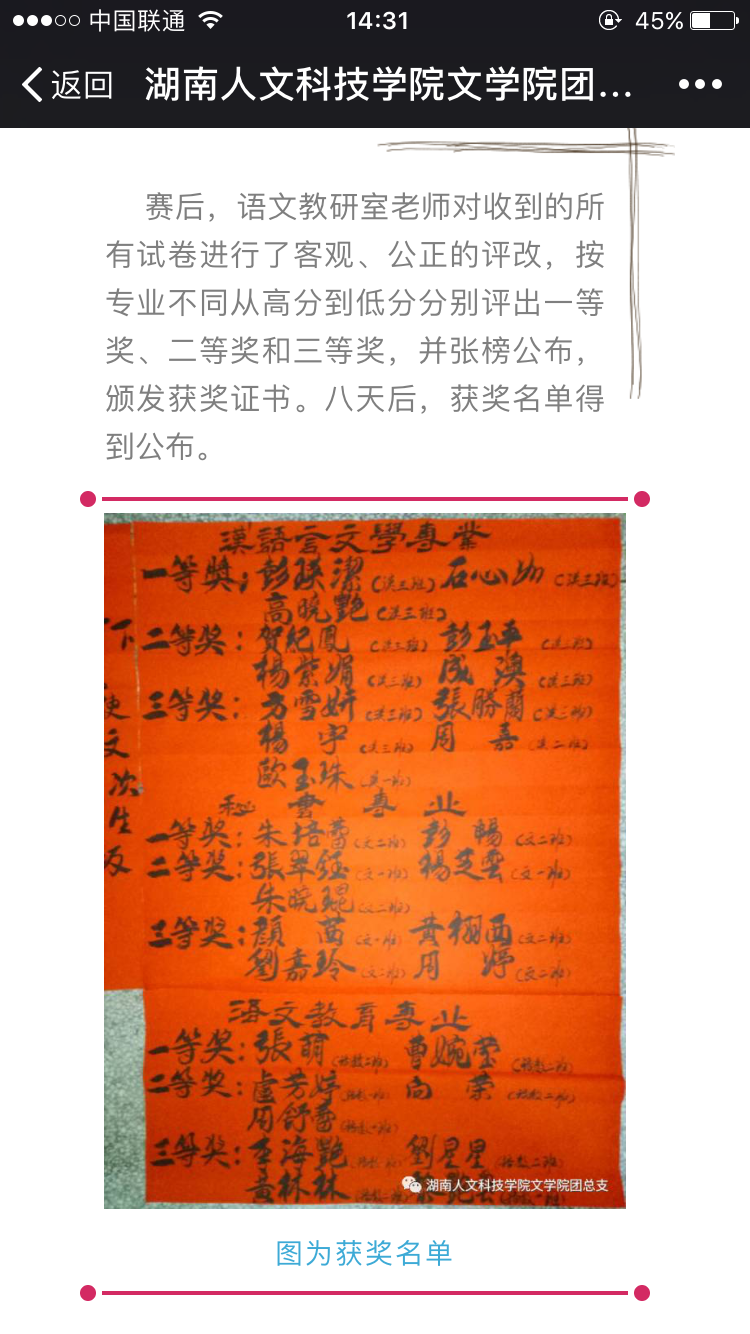 中国联通 14:31 45%
返回 湖南人文科技学院文学院团…
赛后，语文教研室老师对收到的所
有试卷进行了客观、公正的评改，按
专业不同从高分到低分分别评出一等
奖、二等奖和三等奖，并张榜公布，
颁发获奖证书。八天后，获奖名单得
到公布。
漢語言文學專業
一等獎：彭 潔（汉三班） 石心 （汉三班）
高曉艷（汉三班）
二等奖：賀紀鳳（汉三班） 彭玉平
楊紫娟（汉三班） 成 （汉三班）
三等奖：方雪妍（汉三班） 張勝蘭
楊宇（汉三班） 周嘉（汉二班）
歐玉珠（汉一班）
秘書專业
一等奖：朱培蕾（文二班） 彭暢（文二班）
二等奖：張翠鈺（文一班） 楊芝雲（文一班）
朱曉鯤（文二班）
三等奖：顏茜（文一班） 黄栩西（文二班）
劉嘉玲（文二班） 周婷（文二班）
语文教育專业
一等奖：張萌（语教二班） 曹婉莹（语教二班）
二等奖：盧芳婷（语教一班） 向荣（语教二班）
周舒蕾（语教一班）
三等奖：李海艷 劉星星（语教二班）
黄林林
下
文
次
生
湖南人文科技学院文学院团总支
图为获奖名单